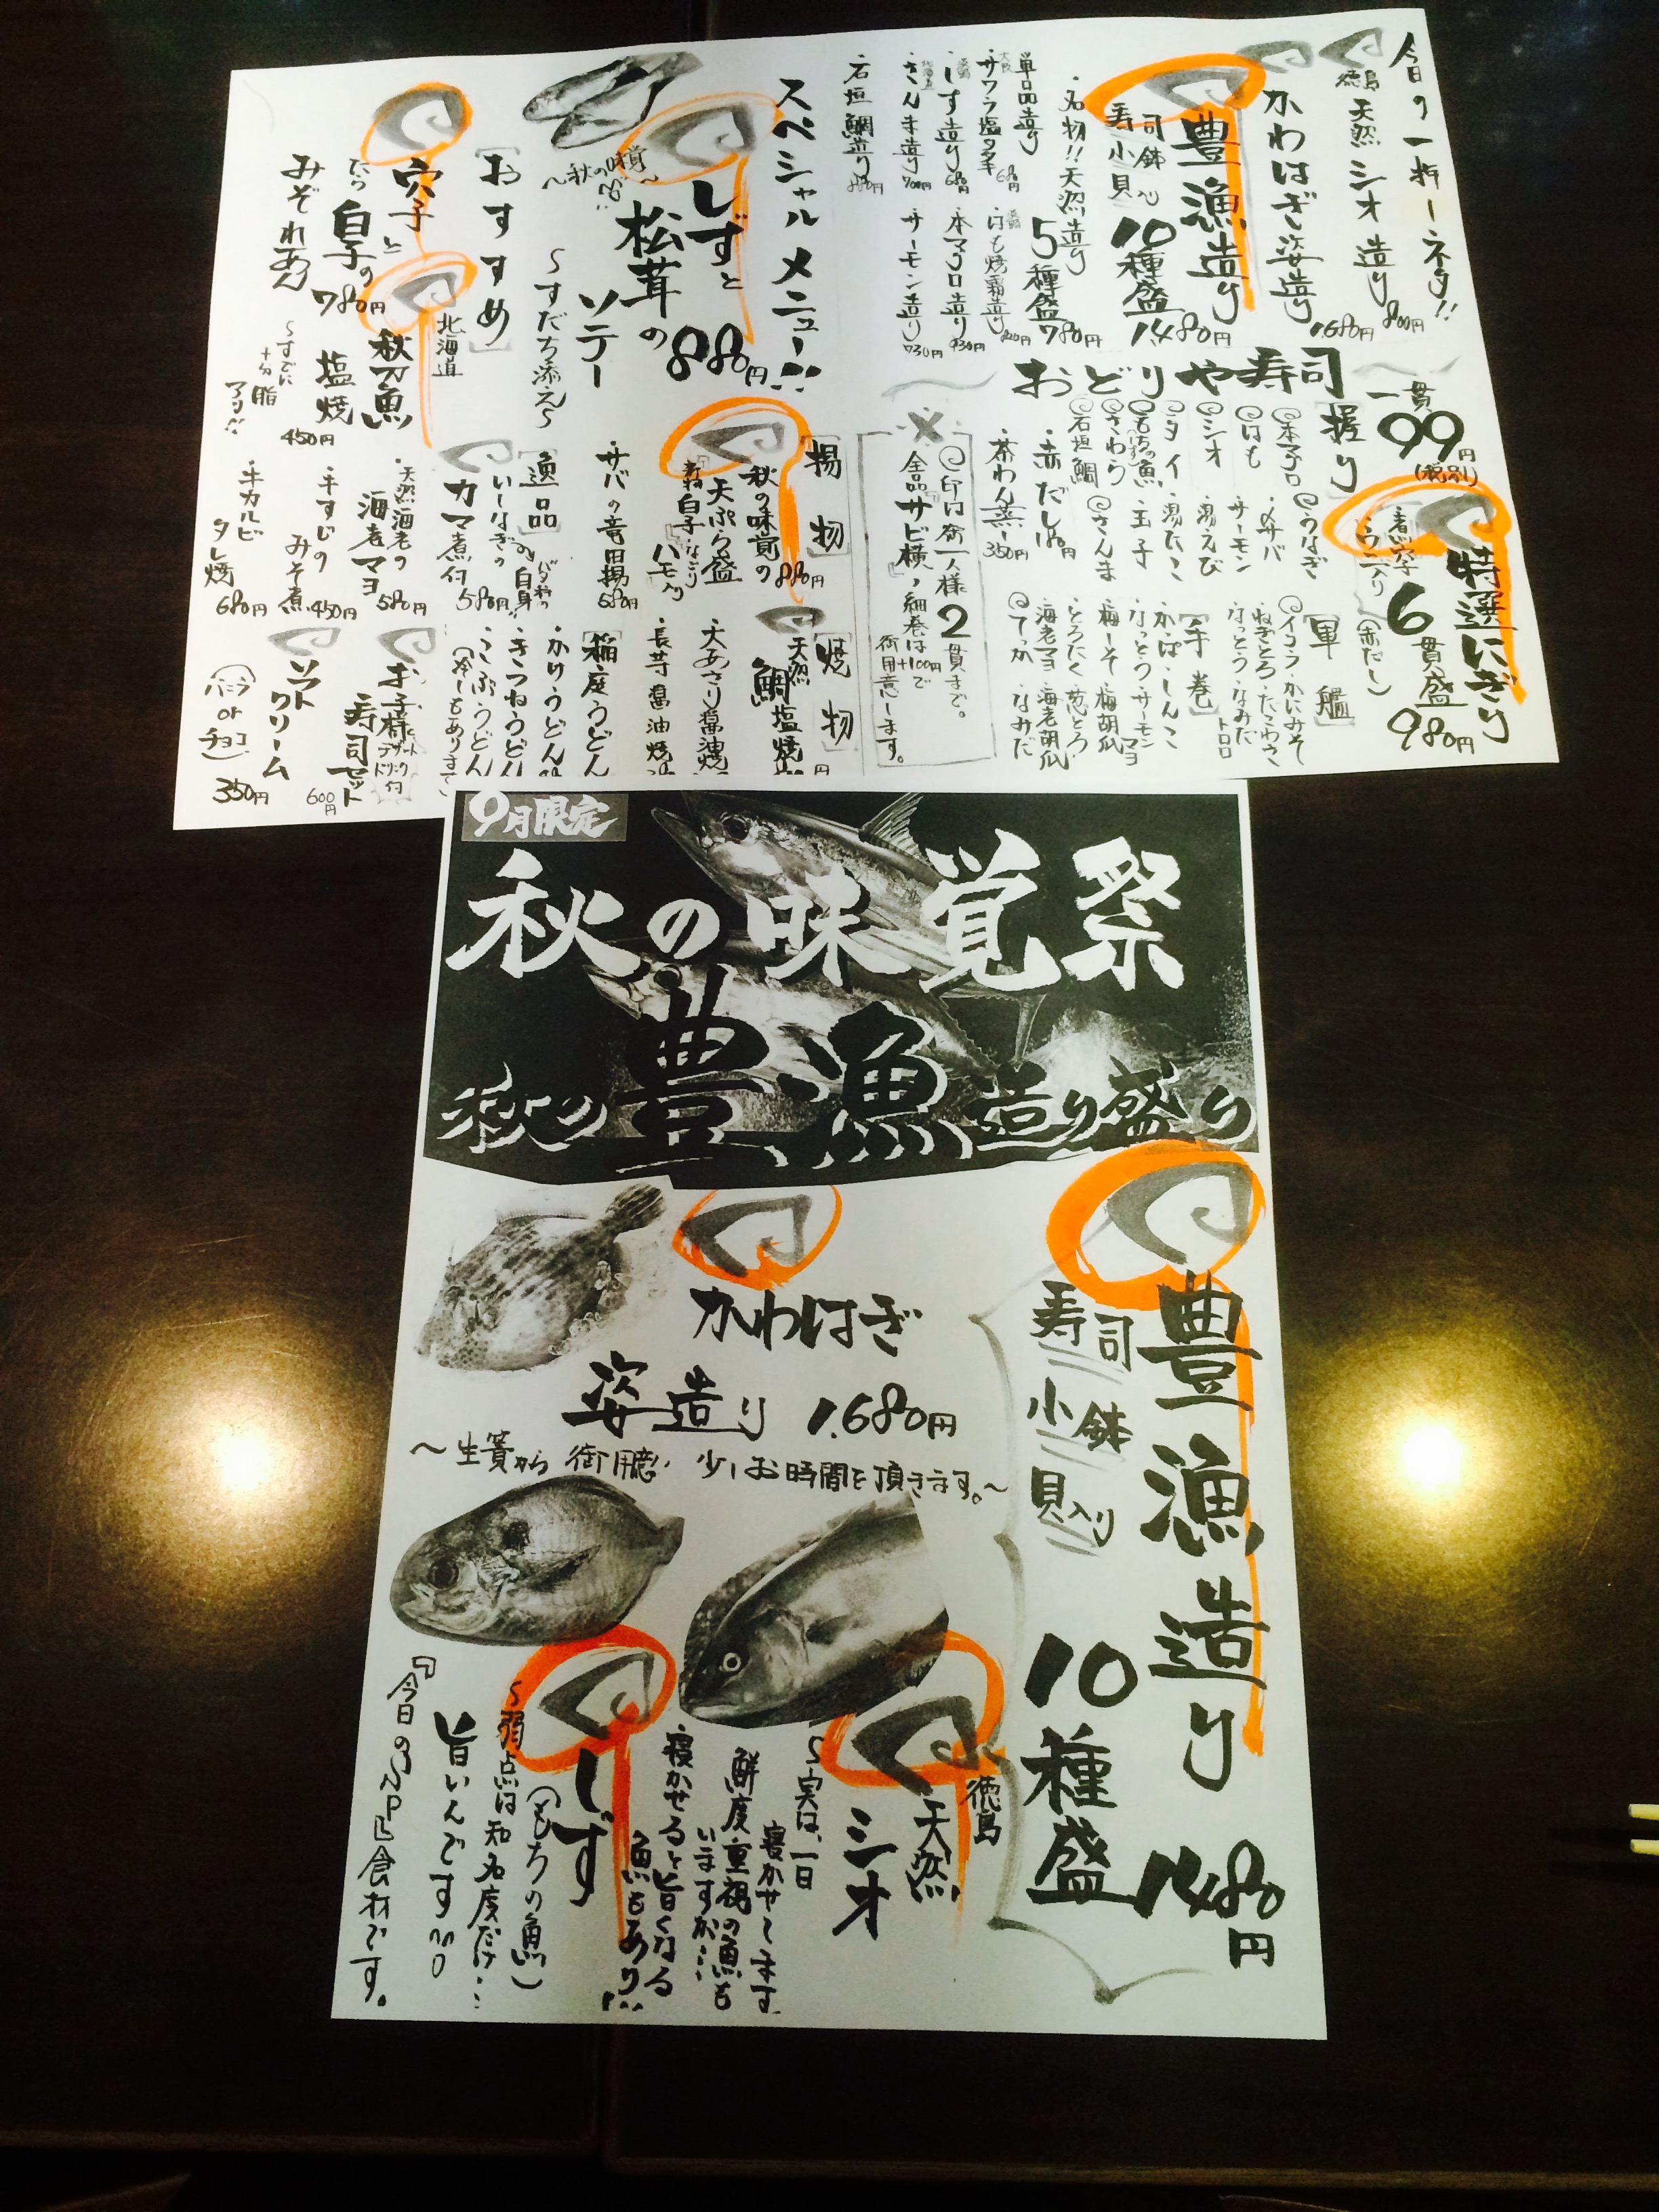 今日の一押しネタ!!
徳島
天然シオ造り 880円
かわはぎ姿造り 1.680円
豊漁造り
寿司小鉢入り
貝
10種盛 1.480円
名物!!天然造り
5種盛 780円
単品造り
サワラ塩タタキ 680円
しず造り 680円
さんま造り 700円
石垣鯛造り 880円
はも焼霜造り
本マグロ造り 930円
サーモン造り 730円
おどりや寿司
一貫
99円
(税別)
特選にぎり
煮穴子
ウニ入り
6貫盛
(赤だし)
980円
[握り]
本マグロ
はも
シオ
タイ
もちの魚
さわら
石垣鯛
うなぎ
〆サバ
サーモン
湯えび
湯たこ
玉子
さんま
赤だし 180円
茶わん蒸し 350円
[軍艦]
イクラ・かにみそ
ねぎとろ・たこわさ
なっとう・なみだ
[手巻]
かっぱ・しんこ
なっとう・サーモンマヨ
トロロ
梅しそ・梅胡瓜
とろたく・葱とろ
海老マヨ・海老胡瓜
てっか・なみだ
印は御一人様2貫まで。
全品『サビ横』、細巻は+100円で
御用意します。
スペシャルメニュー!!
しずと
松茸の
ソテー
880円
〜秋の味覚〜
〜すだち添え〜
[おすすめ]
穴子と
たら白子の
みぞれあん
780円
北海道
秋刀魚
塩焼
450円
〜すでに
十分脂
アリ!!
[揚物]
秋の味覚の
天ぷら盛
880円
白子・なごり
ハモ入り
サバの竜田揚 580円
[逸品]
カマ煮付 580円
天然海老の
海老マヨ 580円
牛すじの
みそ煮 450円
牛カルビ
タレ焼 680円
[焼物]
天然
鯛塩焼
大あさり醤油焼
長芋醤油焼
[稲庭うどん]
かけうどん
きつねうどん
こぶうどん
(冷しもあります)
お子様
デザート
ドリンク付
寿司セット
600円
ソフト
クリーム
(バニラ
or
チョコ)
350円
9月限定
秋の味覚祭
秋の豊漁造り盛り
豊漁造り
1.480円
寿司
小鉢
貝入り
10種盛
かわはぎ
姿造り 1.680円
〜生簀から御用意 少しお時間を頂きます。〜
徳島
天然
シオ
〜実は、一日
寝かせてます
鮮度重視の魚も
いますが…
寝かせると旨くなる
魚もあり!!
しず
(もちの魚)
〜弱点は知名度だけ…
旨いんです
『今日のNP』食材です。